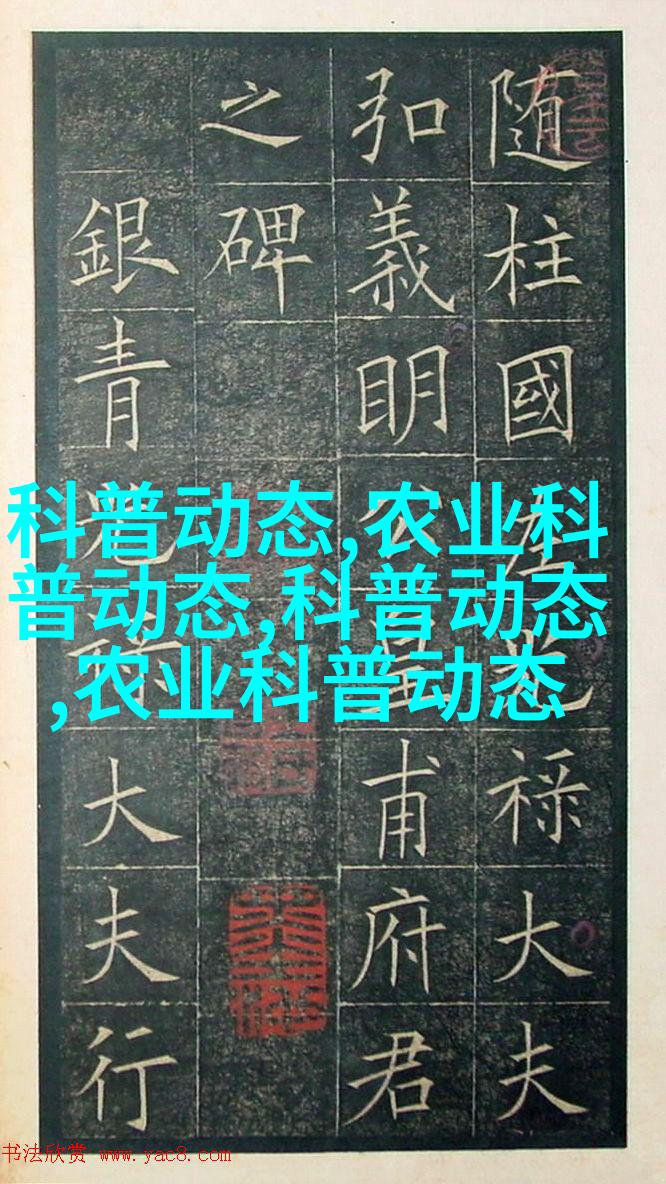 随柱國左光禄大夫
弘義明公皇甫府君
之碑
銀青光禄大夫行
科普动态,农业科
普动态,科普动态
,农业科普动态
书法欣赏 www.yac8.com